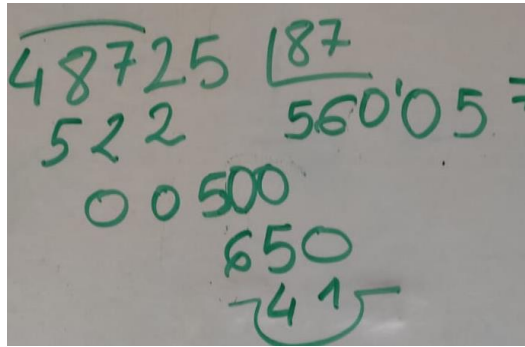 48725 87
522 560'05
00500
650
41